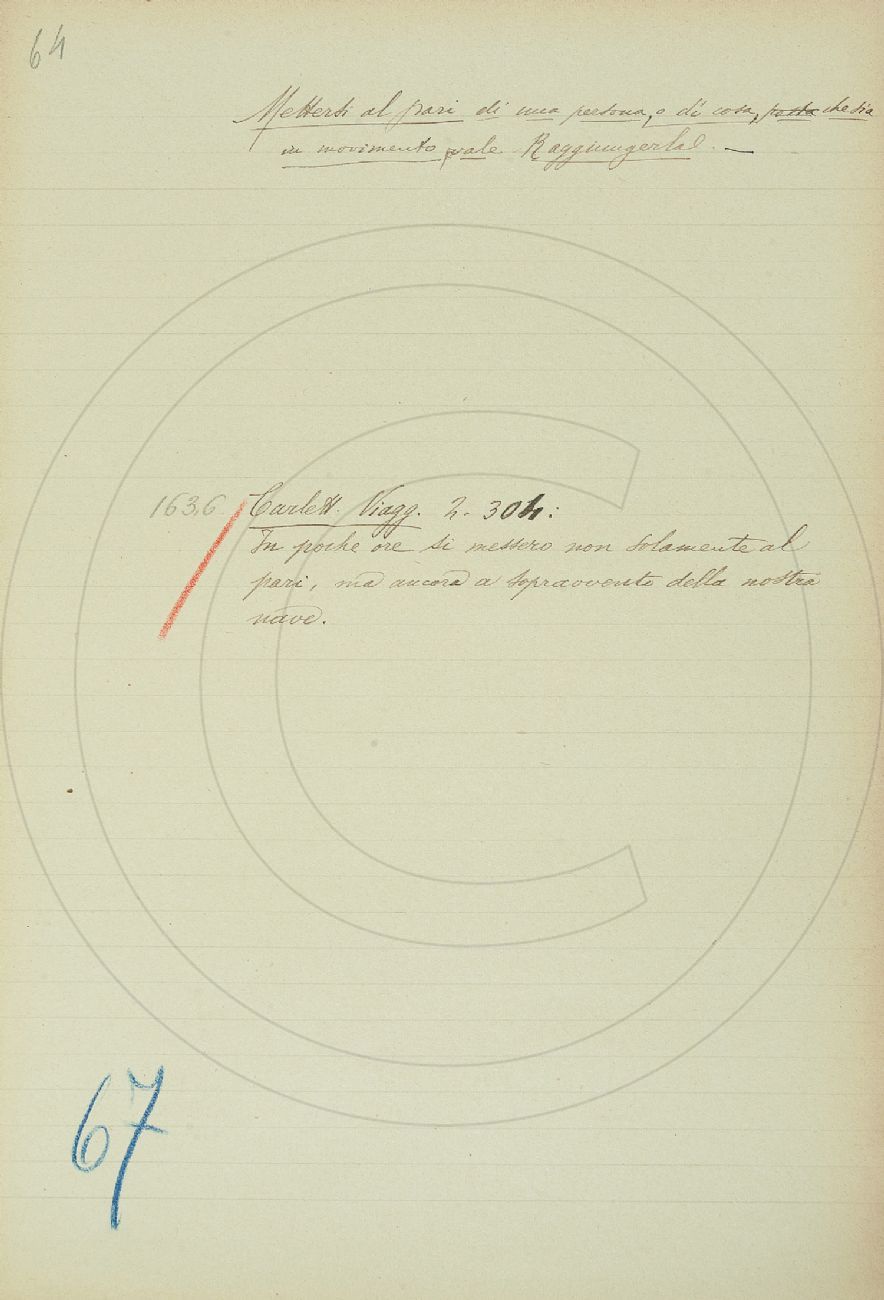 64
Mettersi al pari di una persona, o di cosa, posta che sia
in movimento, vale Raggiungerla. —
1636 Carlett. Viagg. 2. 304:
In poche ore si messero non solamente al
pari, ma ancora a sopravvento della nostra
nave.
67